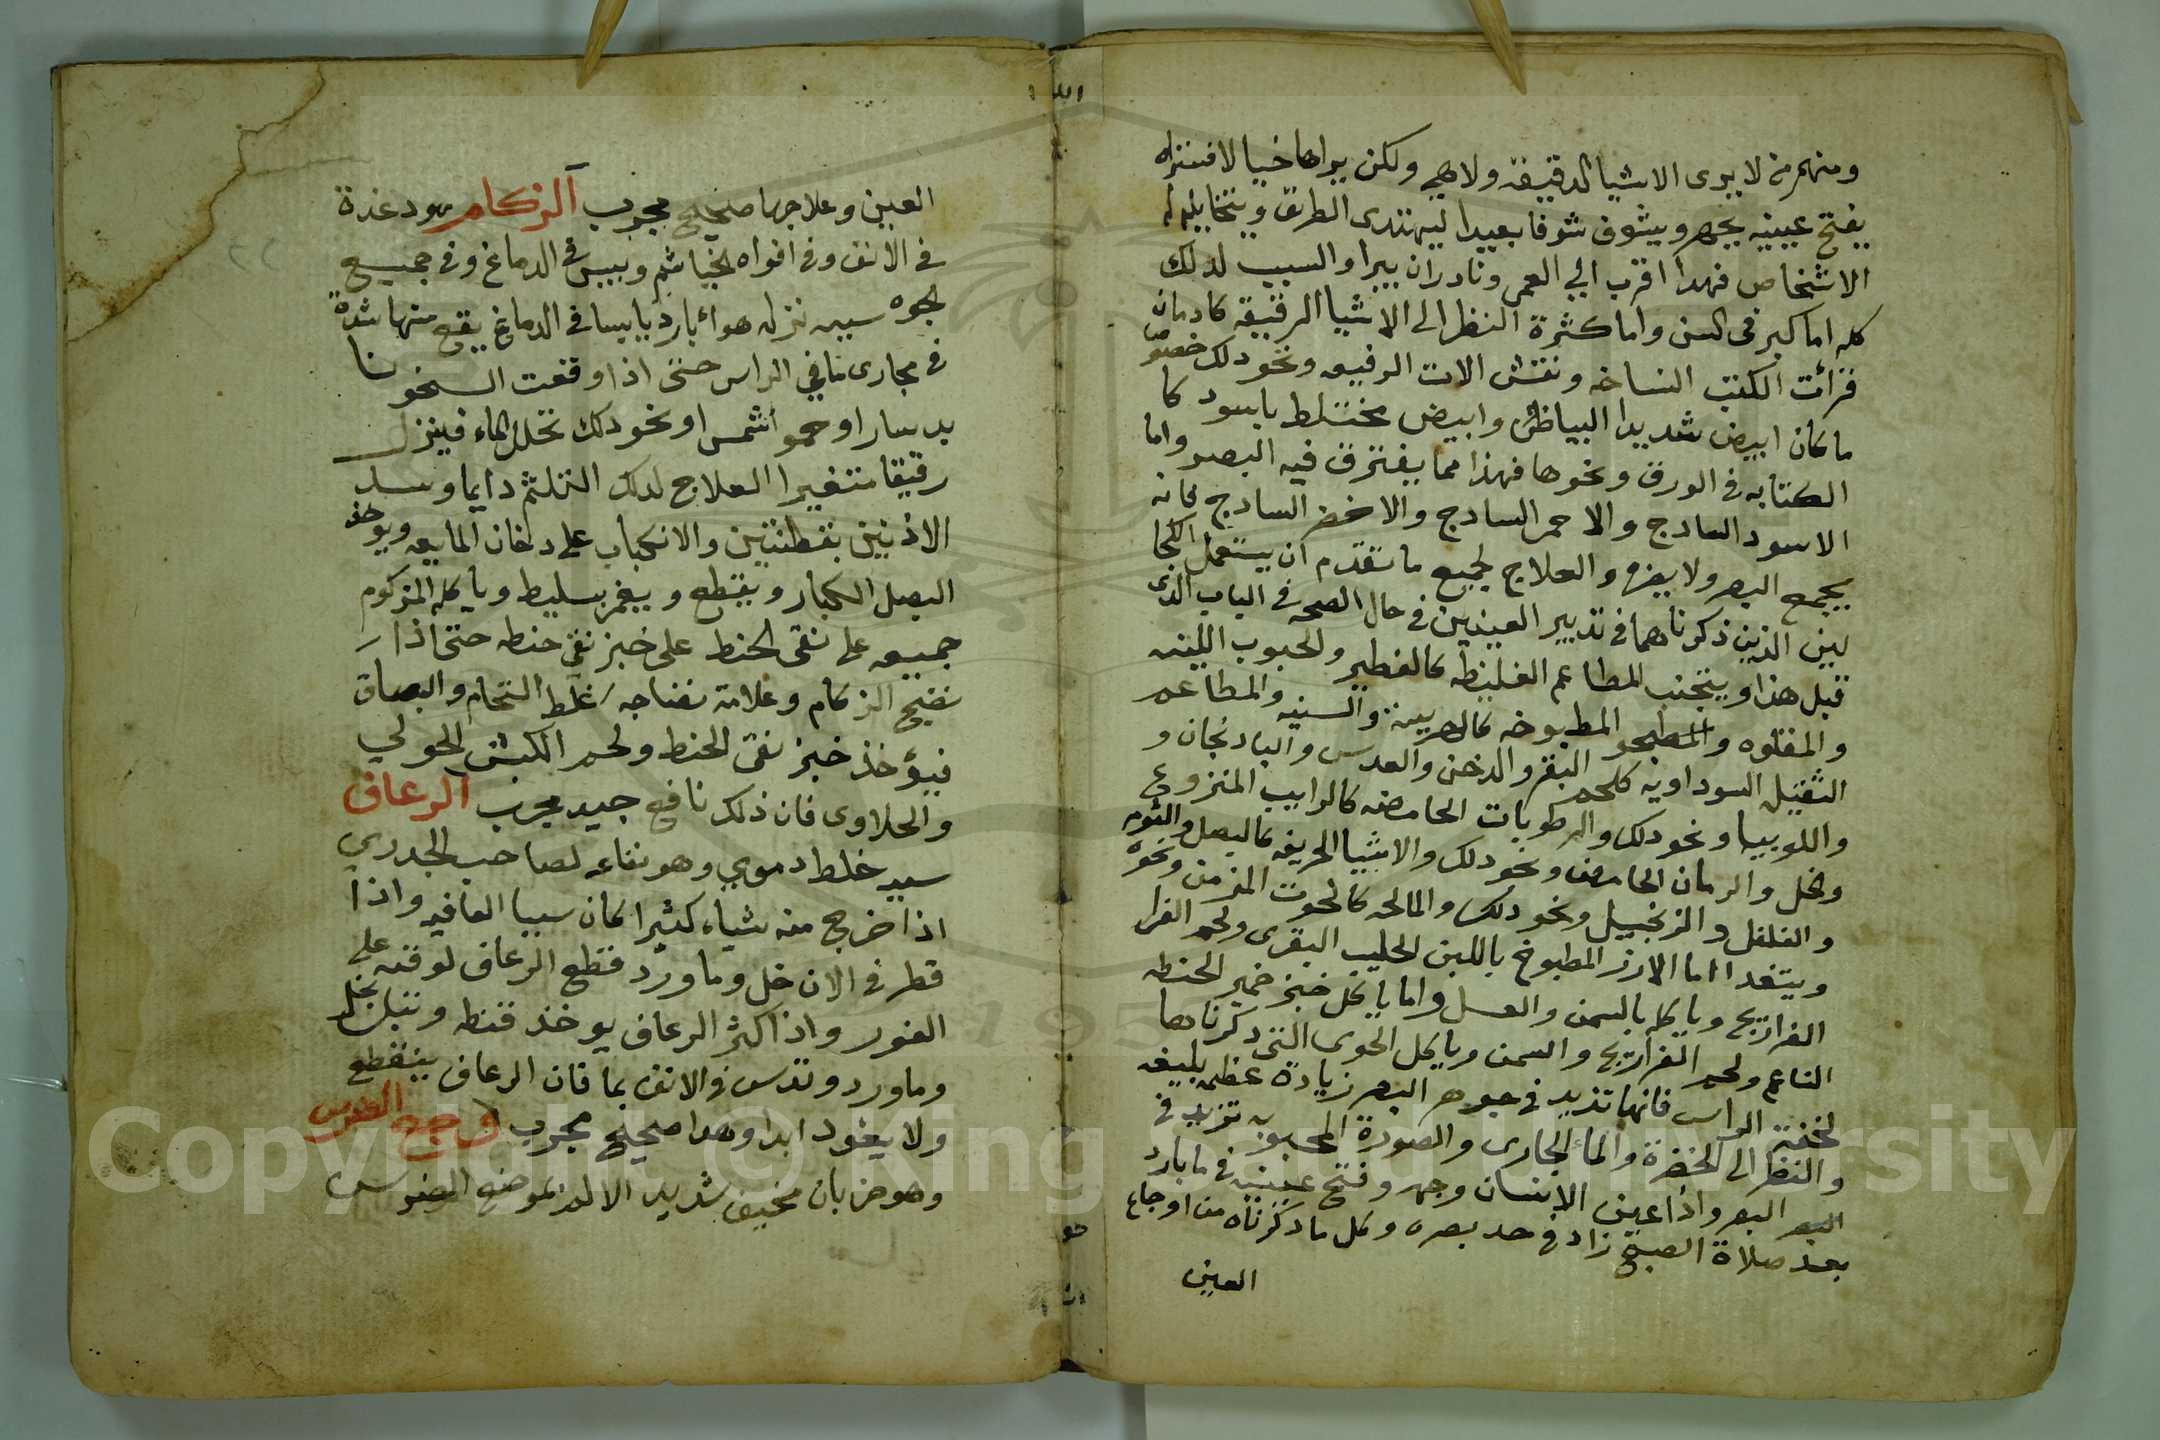 ومنهم من لا يرى الاشيا الدقيقة ولا هي ولكن يراها خيالا فتراه
يفتح عينيه بجهر ويشوف شوفا بعيدا ليهتدى الطريق ويتخايل له
الاشخاص فهذا اقرب الي العمى ونادر ان يبرا والسبب لذلك
كله اما كبر فى السن واما كثرة النظر الى الاشيا الرقيقه كادمان
قرائت الكتب النساخه ونقش الات الرفيعه ونحو ذلك خصوص
ما كان ابيض شديدا البياظ وابيض مختلط باسود كا
الكتابه فى الورق ونحوها فهذا مما يفترق فيه البصر واما
الاسود السادج والاحمر السادج والاخضر السادج فانه
يجمع البصر ولا يفرق والعلاج لجميع ما تقدم ان يستعمل الكحا
لين الذين ذكرناهما فى تدبير العينين فى حال الصحه فى الباب الذى
قبل هذا ويتجنب المطاعم الغليظه كالفطير والحبوب اللينه
والمقلوه والمطبوخه كالهريسة والسنيه والمطاعم
الثقيله السوداويه كلحم البقر والدخن والعدس والبادنجان و
واللوبيا ونحو ذلك والرطوبات الحامضه كالرايب المنزوع
وخل والرمان الحامض ونحو ذلك والاشيا الحريفه كالبصل والثوم
والفلفل والزنجبيل ونحو ذلك والمالحه كالحوت المزمن ونحو
ويتغدا اما الارز المطبوخ باللبن الحليب البقرى ولحم الفرا
الفراريج وياكله بالسمن والعسل واما ياكل خبز خمير الحنطه
الناعم ولحم الفراريج والسمن وياكل الحوى التى ذكرناها
لخفة الراس فانها تزيد فى جوهر البصر زيادة عظيمه بليغه
والنظر الى الخضرة والماء الجارى والصورة المحبوبه تزيد فى
البصر واذا عين الانسان وجهه وفتح عينيه فى ما بارد
بعد صلاة الصبح زاد فى حد بصره وكل ما ذكرناه من اوجاع
العين
العين وعلاجها صحيح مجرب الزكام هو دغدغة
فى الانف وفى افواه الخياشم ويبس فى الدماغ وفى جميع
الجوه سببه نزله هواء بارد يابسا فى الدماغ يقع منها شدة
فى مجارى ما فى الراس حتى اذا وقعت السخونا
بدسار او حمو الشمس او نحو ذلك تحلل الماء فينزل
رقيقا متغيرا العلاج لذلك التلثم دايما وسد
الاذنين بقطنتين والانكباب على دخان المايعه ويوخذ
البصل الكبار ويقطع ويغمر بسليط وياكله المزكوم
جميعه على نقى الحنط على خبز نقى حنطه حتى اذا
نضيج الزكام وعلامة نضاجه غلظ النخام والبصاق
فيؤخذ خبز نقى الحنط ولحم الكبش الحولي
والحلاوى فان ذلك نافع جيد مجرب الرعاف
سببه خلط دموي وهو نفاعه لصاحب الجدري
اذا خرج منه شياء كثيرا كان سببا العافيه واذا
قطر فى الانف خل وما ورد قطع الرعاف لوقته على
الفور واذا كثر الرعاف يوخذ قنطه وتبل بخل
وماورد وتدس فى الانف بما فان الرعاف ينقطع
ولا يعود ابدا وهذا صحيح مجرب وجع الضرس
وهو ضربان مخيف شديد الالم بموضع الضرس
Copyright © King Saud University